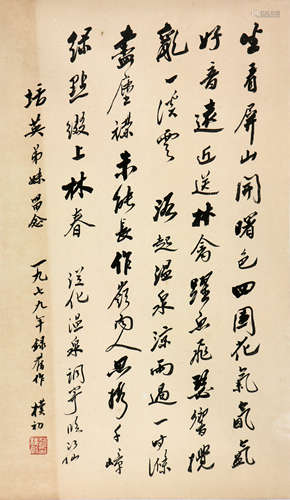 坐看屏山開曙色四圍花氣氤氳
好音遠近送林禽躍魚飛瑟響攪
亂一溪雲 浴起温泉涼雨過一時滌
盡塵襟未能長作嶺内人思携千嶂
緑點綴上林春 從化温泉調寄臨江仙
培英弟妹留念
一九七九年録舊作 樸初